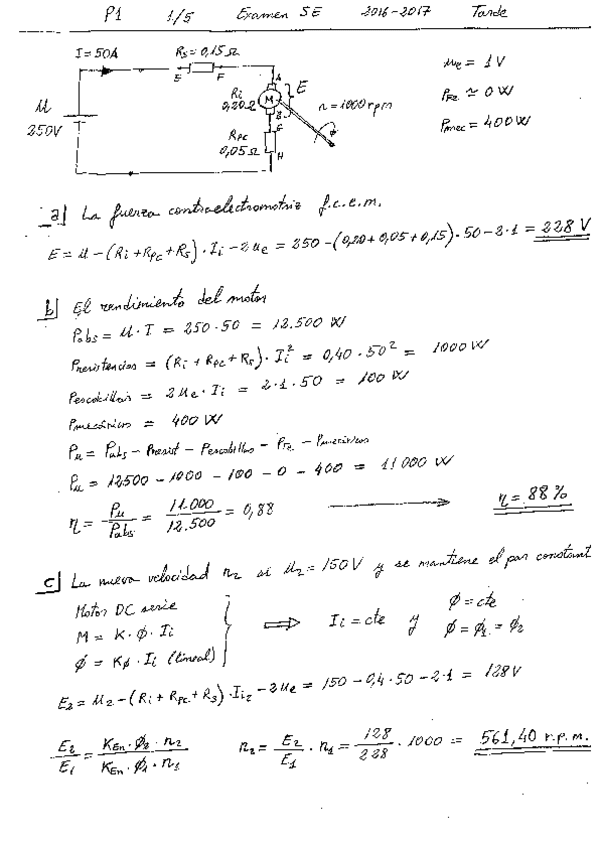 P1 1/5 Examen SE 2016-2017 Tarde
I = 50A Rs = 0,15 Ω
E F A
U 250V
Ri 0,20Ω M E n = 1000 rpm
B
G
Rpc 0,05 Ω H
ue = 1 V
PFe ≃ 0 W
Pmec = 400 W
a) La fuerza contraelectromotriz f.c.e.m.
E = U - (Ri + Rpc + Rs) · Ii - 2ue = 250 - (0,20 + 0,05 + 0,15) · 50 - 2·1 = 228 V
b) El rendimiento del motor
Pabs = U · I = 250 · 50 = 12.500 W
Presistencias = (Ri + Rpc + Rs) · Ii² = 0,40 · 50² = 1000 W
Pescobillas = 2ue · Ii = 2 · 1 · 50 = 100 W
Pmecánicas = 400 W
Pu = Pabs - Presist - Pescobillas - PFe - Pmecánicas
Pu = 12500 - 1000 - 100 - 0 - 400 = 11000 W
η = Pu/Pabs = 11.000/12.500 = 0,88 → η = 88 %
c) La nueva velocidad n2 si U2 = 150V y se mantiene el par constant
Motor DC serie
M = K · Φ · Ii
Φ = KΦ · Ii (lineal)
⇒ Ii = cte y Φ = cte
Φ = Φ1 = Φ2
E2 = U2 - (Ri + Rpc + Rs) · Ii2 - 2ue = 150 - 0,4 · 50 - 2·1 = 128V
E2/E1 = KEn · Φ2 · n2 / KEn · Φ1 · n1 n2 = E2/E1 · n1 = 128/228 · 1000 = 561,40 r.p.m.